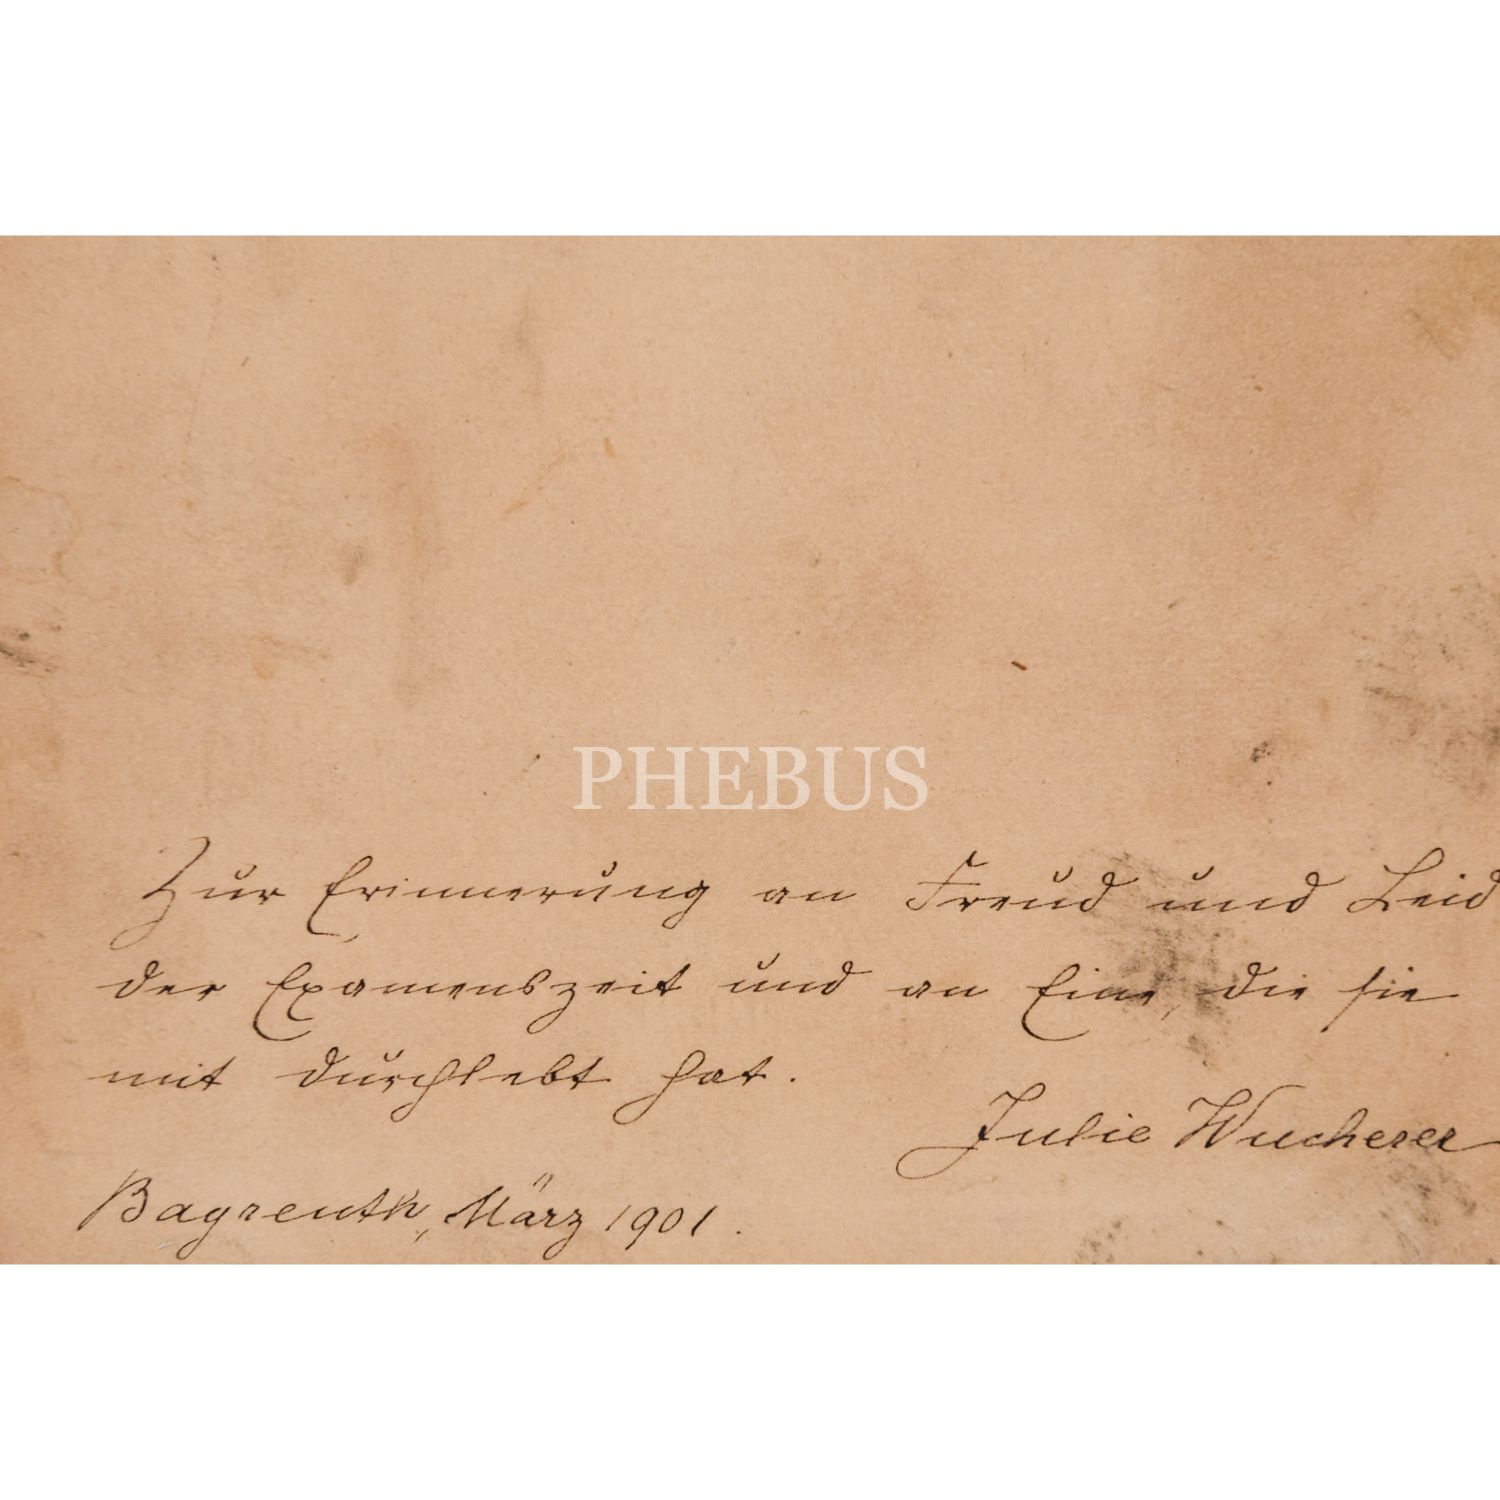 PHEBUS
Zur Erinnerung an Freud und Leid
der Examenszeit und an Eine, die sie
mit durchlebt hat.
Julie Wucherer
Bayreuth, März 1901.